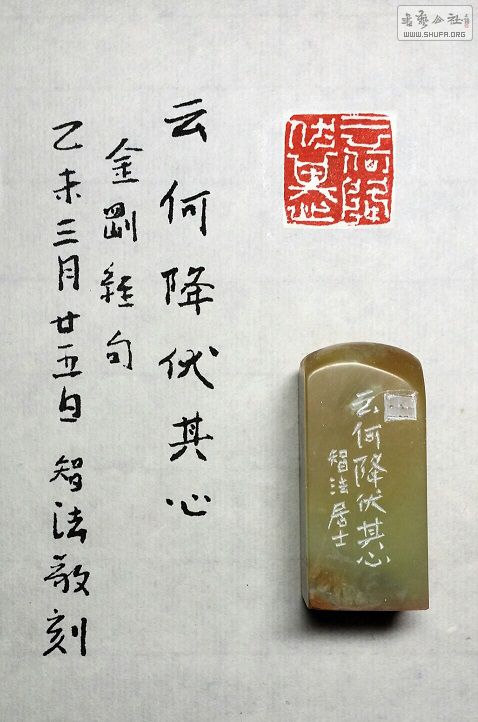 云何降伏其心
金剛經句
乙未三月廿五日 智法敬刻
云何降伏其心
云何降伏其心
智法居士
书艺公社
WWW.SHUFA.ORG